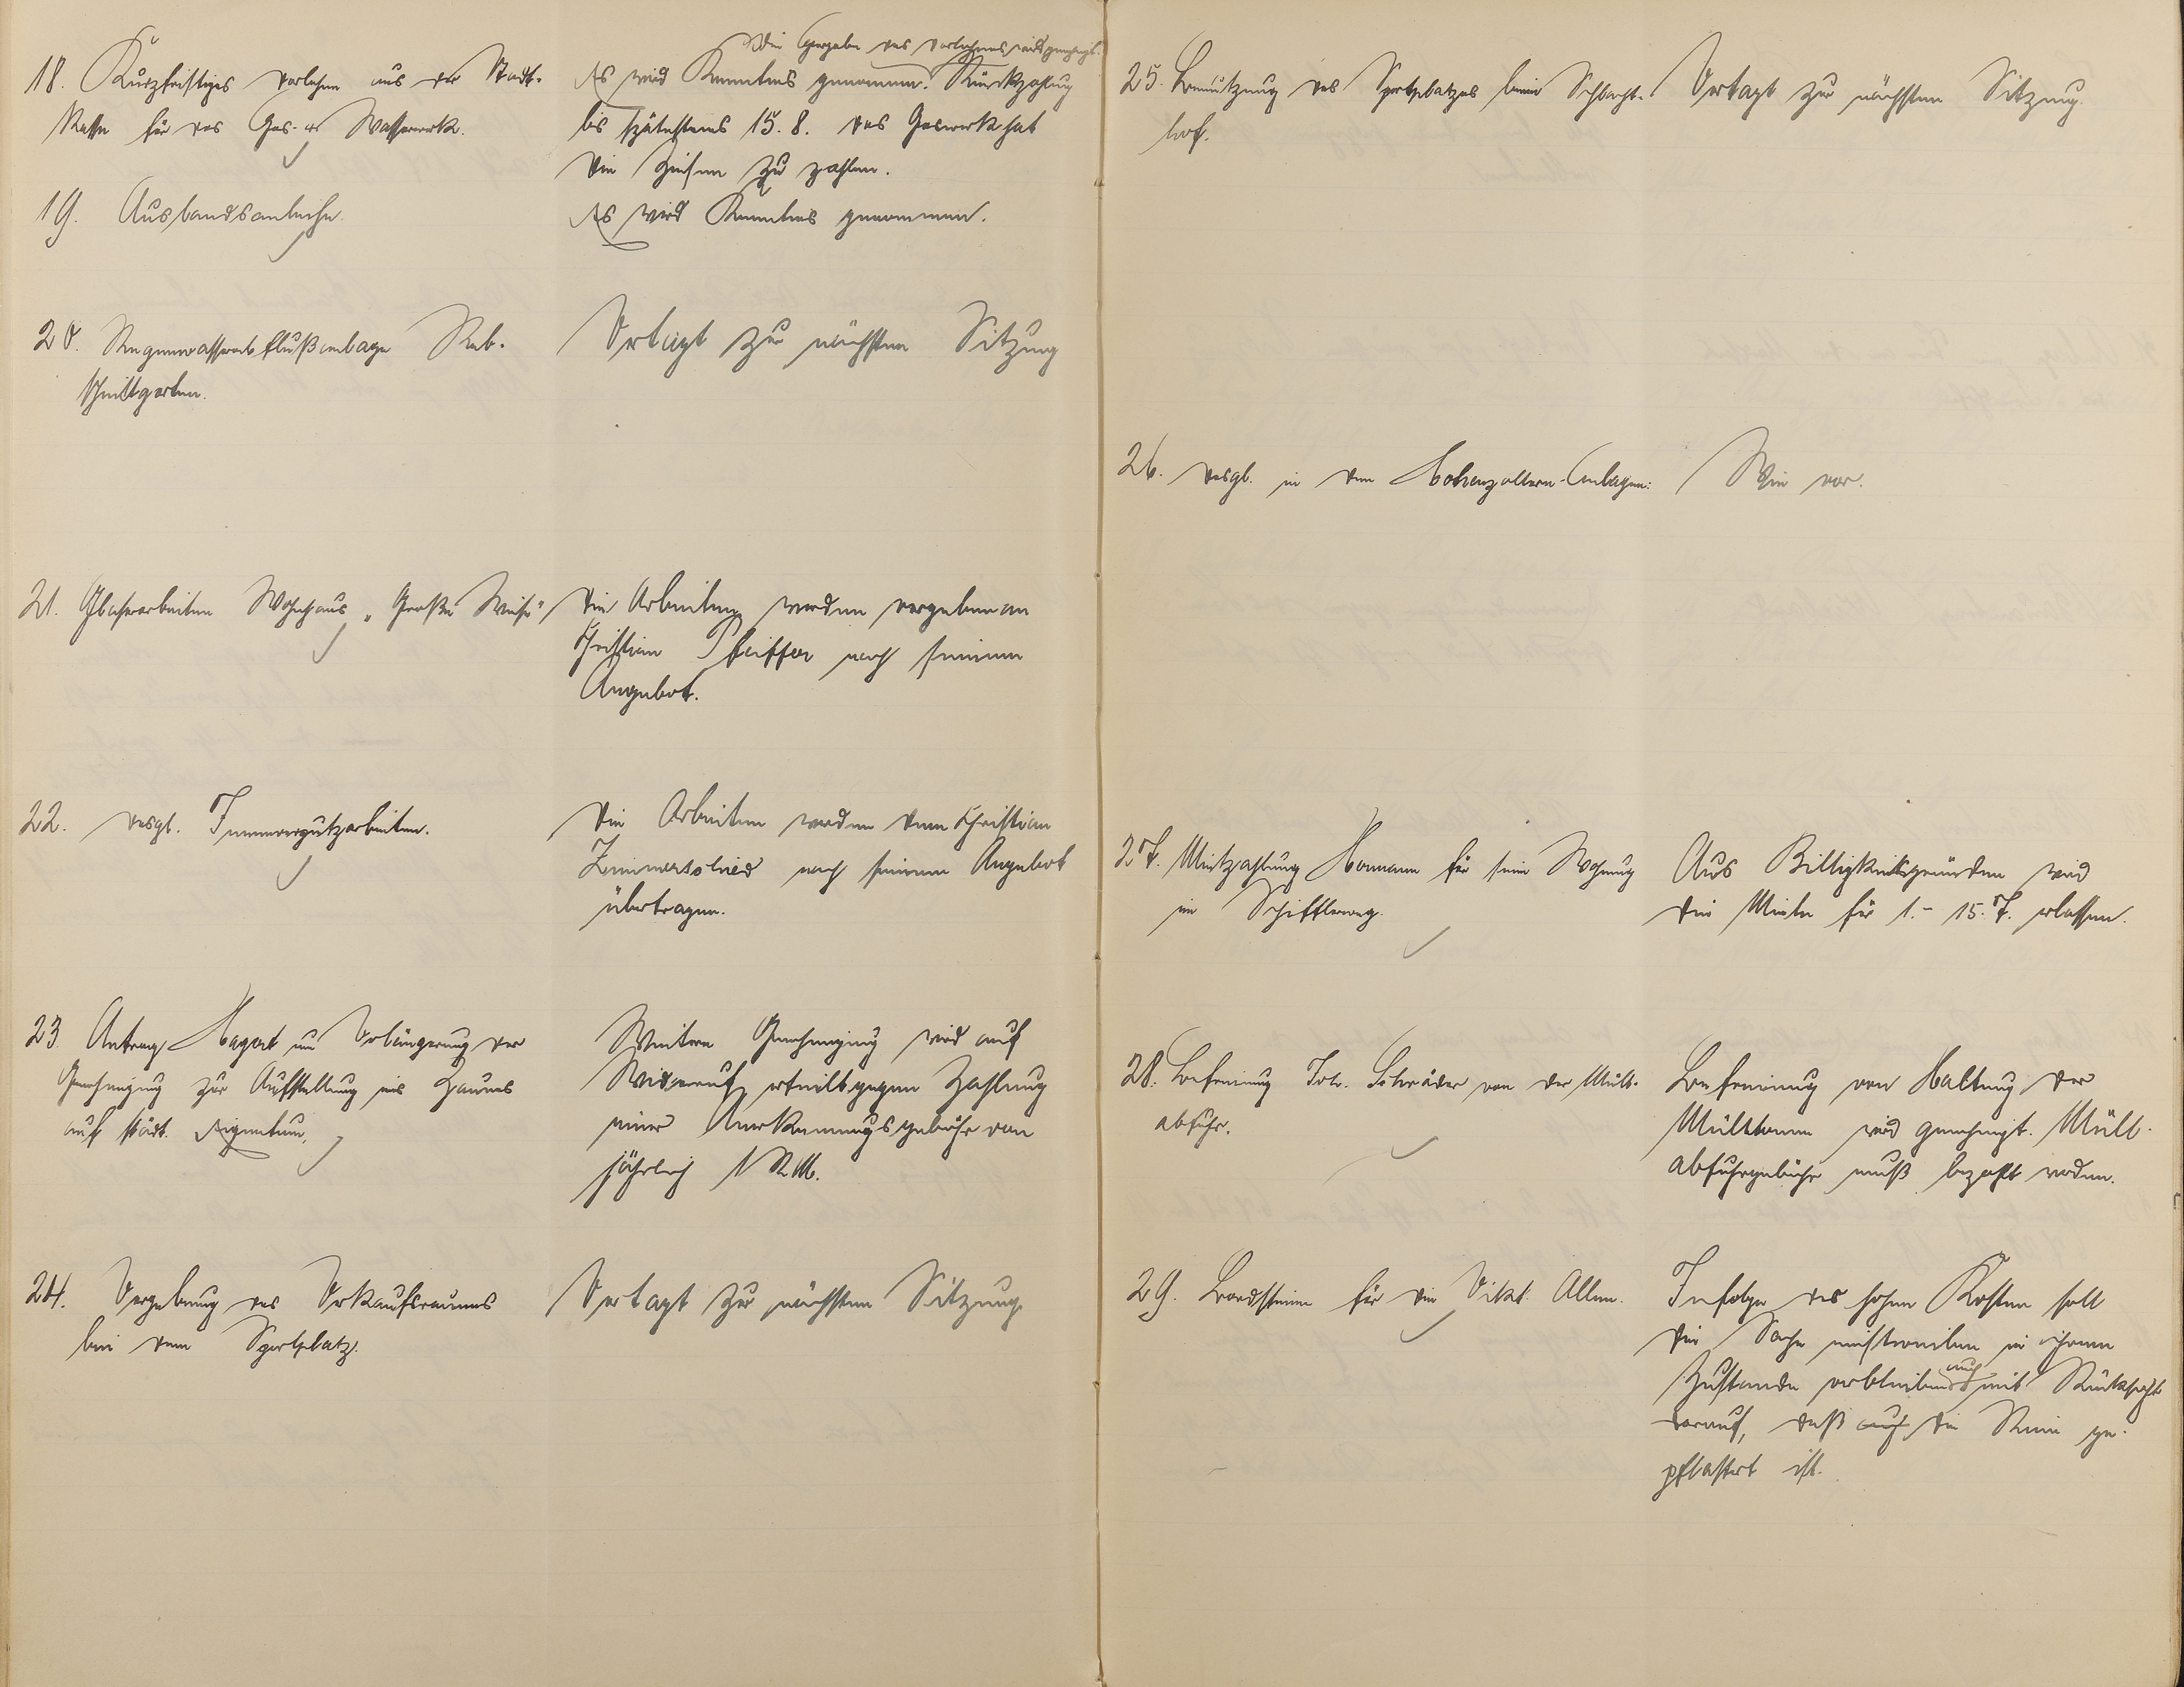 18. Kurzfristiges Darlehen aus der Stadt-
kasse für das Gas- u. Wasserwerk.
Die Hergabe des Darlehens wird genehmigt.
Es wird Kenntnis genommen. Rückzahlung
bis spätestens 15. 8. Das Gaswerk hat
die Zinsen zu zahlen.
19. Auslandsanleihe.
Es wird Kenntnis genommen.
20. Regenwasserabflußanlage Reb-
schnittgarten.
Vertagt zur nächsten Sitzung
21. Glaserarbeiten Wohnhaus „Große Weise"
Die Arbeiten werden vergeben an
Christian Pfeiffer nach seinem
Angebot.
22. desgl. Innenputzarbeiten.
Die Arbeiten werden dem Christian
Zimmerschied nach seinem Angebot
übertragen.
23. Antrag Hagert um Verlängerung der
Genehmigung zur Aufstellung eines Zaunes
auf städt. Eigentum.
Weitere Genehmigung wird auf
Widerruf erteilt gegen Zahlung
einer Anerkennungsgebühr von
jährlich 1 RM.
24. Vergebung des Verkaufsraumes
bei dem Sportplatz.
Vertagt zur nächsten Sitzung.
25. Benützung des Sportplatzes beim Schlacht-
hof.
Vertagt zur nächsten Sitzung.
26. desgl. in den Hohenzollern-Anlagen:
Wie vor.
27. Mietzahlung Homann für seine Wohnung
im Schifflerweg.
Aus Billigkeitsgründen wird
die Miete für 1.- 15. 7. erlassen.
28. Befreiung Joh. Schräder von der Müll-
abfuhr.
Befreiung von Haltung der
Mülltonne wird genehmigt. Müll-
abfuhrgebühr muß bezahlt werden.
29. Bordsteine für die Vikt. Allee.
Infolge der hohen Kosten soll
die Sache einstweilen in ihrem
Zustande verbleiben auch mit Rücksicht
darauf, daß auch die Rinne ge-
pflastert ist.